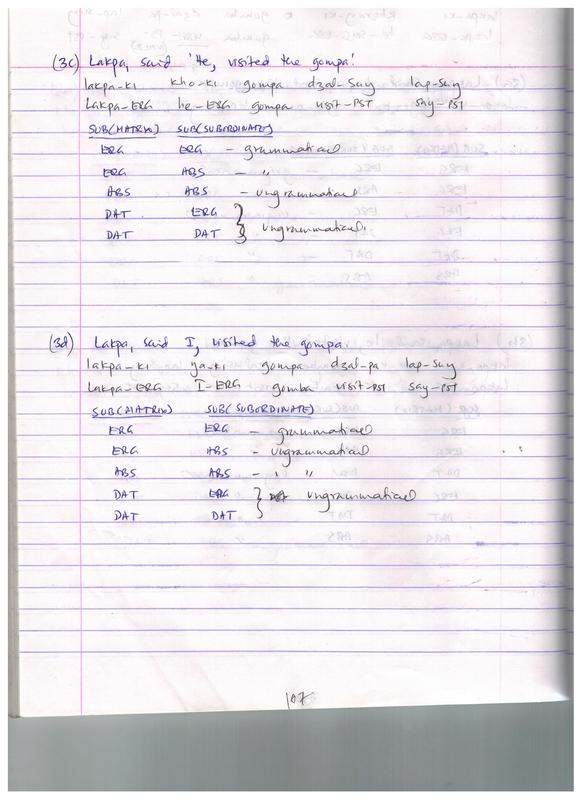 (3c) Lakpa, said 'He, visited the gompa.'
lakpa-ki kho-ki gompa dzal-suŋ lap-suŋ
Lakpa-ERG he-ERG gompa visit-PST say-PST
SUB(MATRIX) SUB(SUBORDINATE)
ERG ERG - grammatical
ERG ABS - "
ABS ABS - ungrammatical
DAT ERG
DAT DAT } ungrammatical.
(3d) Lakpa, said I, visited the gompa.
lakpa-ki ŋa-ki gompa dzal-pa lap-suŋ
Lakpa-ERG I-ERG gomba visit-PST say-PST
SUB(MATRIX) SUB(SUBORDINATE)
ERG ERG - grammatical
ERG ABS - ungrammatical
ABS ABS - " "
DAT ERG } ungrammatical
DAT DAT
107